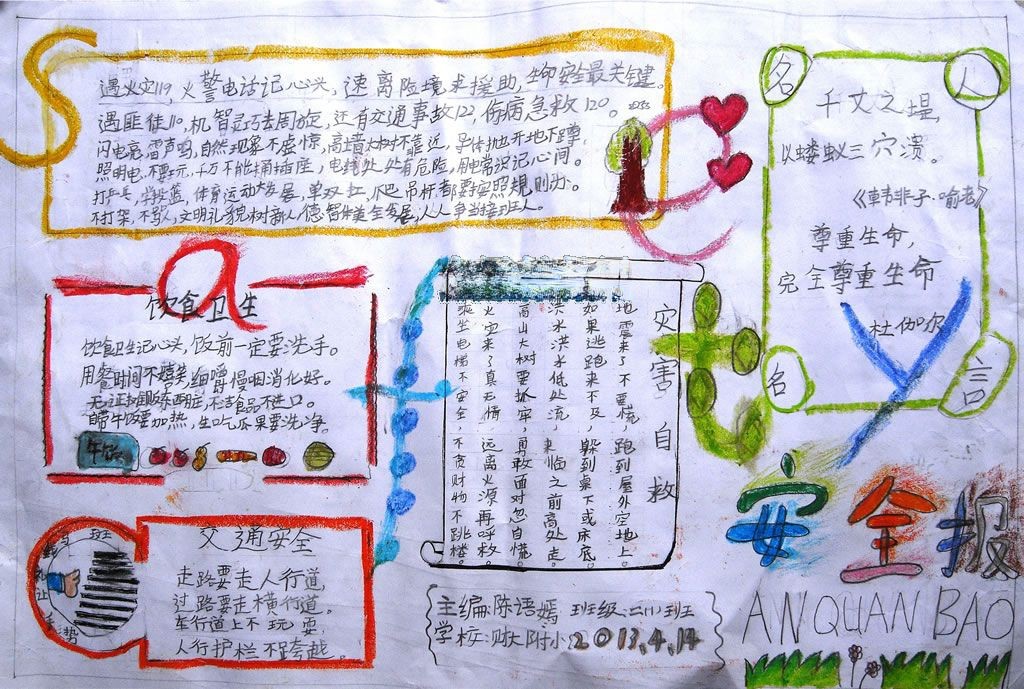 遇火灾119,火警电话记心头,速离险境求援助,生命安全最关键。
遇匪徒110,机智灵巧去周旋,还有交通事故122,伤病急救120。
闪电亮,雷声鸣,自然现象不要惊,高墙大树不靠近,
照明电,不要玩,千万不能捅插座,电线处处有危险,用电常识记心间。
打乒乓,学投篮,体育运动大发展,单双杠,爬吊杆,都要按照规则办。
不打架,不骂人,文明礼貌树新人,德智体美全发展,人人争当接班人。
名人名言
千丈之堤,
以蝼蚁之穴溃。
《韩非子·喻老》
尊重生命,
完全尊重生命
杜伽尔
饮食卫生
饮食卫生记心头,饭前一定要洗手。
用餐时间不嬉笑,细嚼慢咽消化好。
自带午饭要加热,生吃瓜果要洗净。
午饭
灾害自救
地震来了不要慌,跑到屋外空地上。
如果逃跑来不及,躲到桌下或床底。
洪水洪水低处流,来临之前高处走。
高山大树要抓牢,勇敢面对忽自慌。
火灾来了真无情,远离火源再呼救。
乘坐电梯不安全,不贪财物不跳楼。
交通安全
走路要走人行道,
过路要走横行道。
车行道上不玩耍,
人行护栏不跨越。
礼让手势
主编:陈语嫣 班级:二(1)班
学校:财大附小2013.4.14
安全报
AN QUAN BAO
Safety